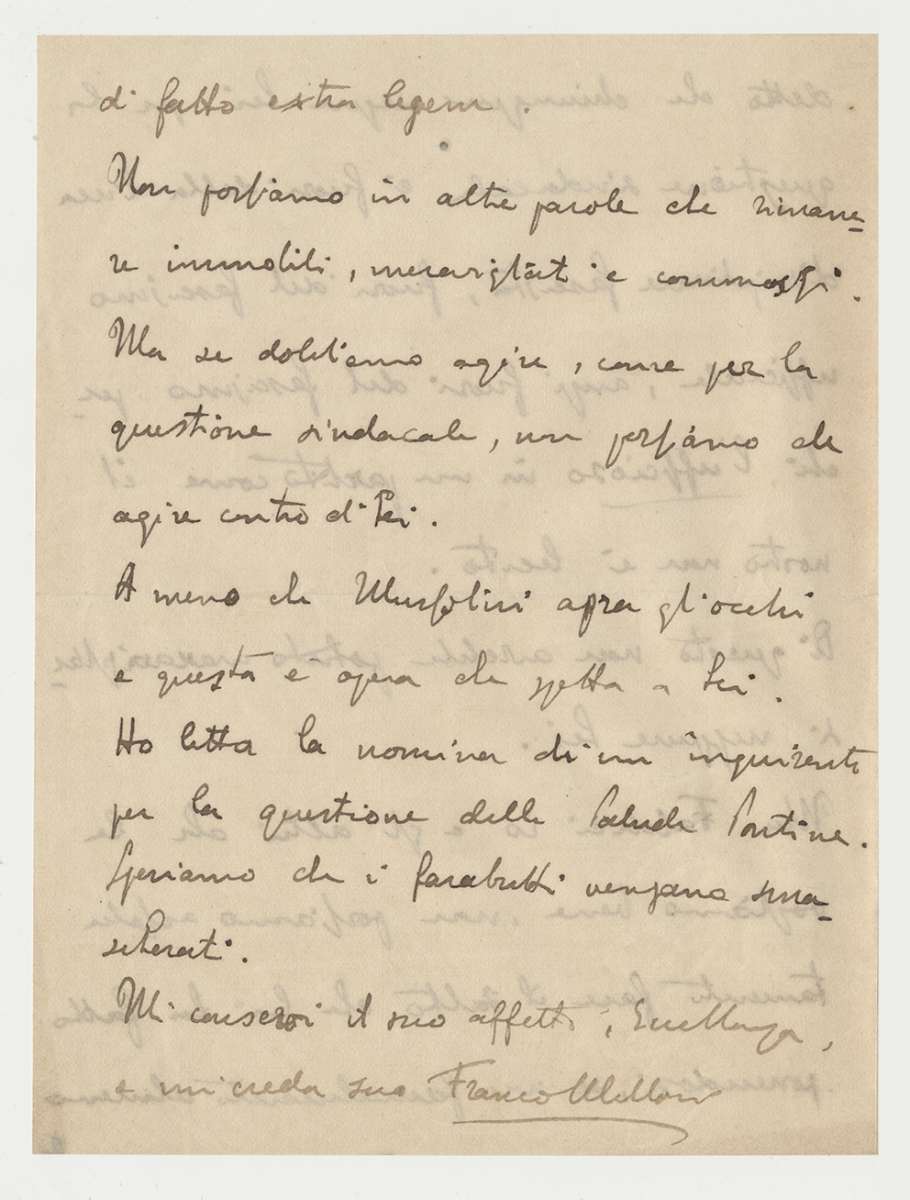 di fatto extra legem.
Non possiamo in altre parole che rimane-
re immobili, meravigliati e commossi.
Ma se dobbiamo agire, come per la
questione sindacale, non possiamo che
agire contro di Lei.
A meno che Mussolini apra gli occhi
e questa è opera che spetta a Lei.
Ho letta la nomina di un inquirente
per la questione delle Paludi Pontine.
Speriamo che i farabutti vengano sma-
scherati.
Mi conservi il suo affetto, Eccellenza,
e mi creda suo Franco